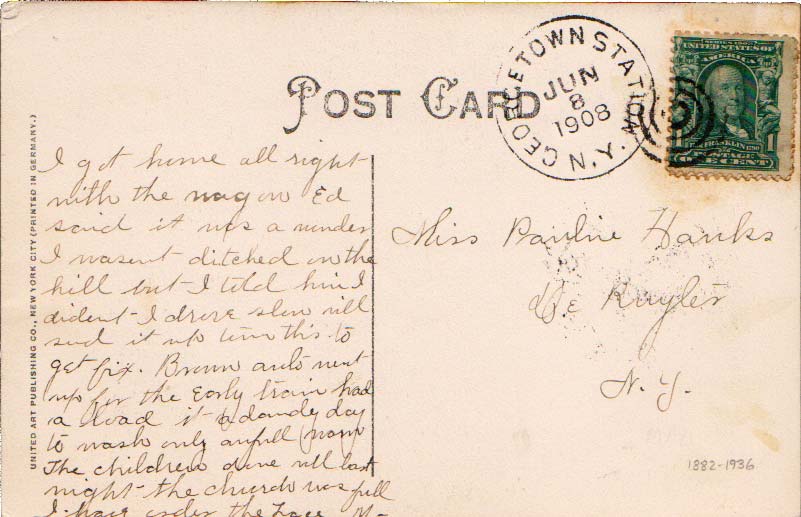 POST CARD
GEORGETOWN STATION
JUN
8
1908
N.Y.
SERIES 1902
UNITED STATES OF
AMERICA
FRANKLIN
1
POSTAGE
ONE CENT
UNITED ART PUBLISHING CO., NEW YORK CITY (PRINTED IN GERMANY.)
I got home all right
with the wagon Ed
said it was a wunder
I wasent ditched on the
hill but I told him I
dident I drove slow will
send it up this to
get fix. Brown auto went
up for the Early train had
a load it a dandy day
to wash only awfull warm
The children done well last
night the church was full
I have order the
Miss Pauline Hanks
De Ruyter
N. Y.
1882-1936